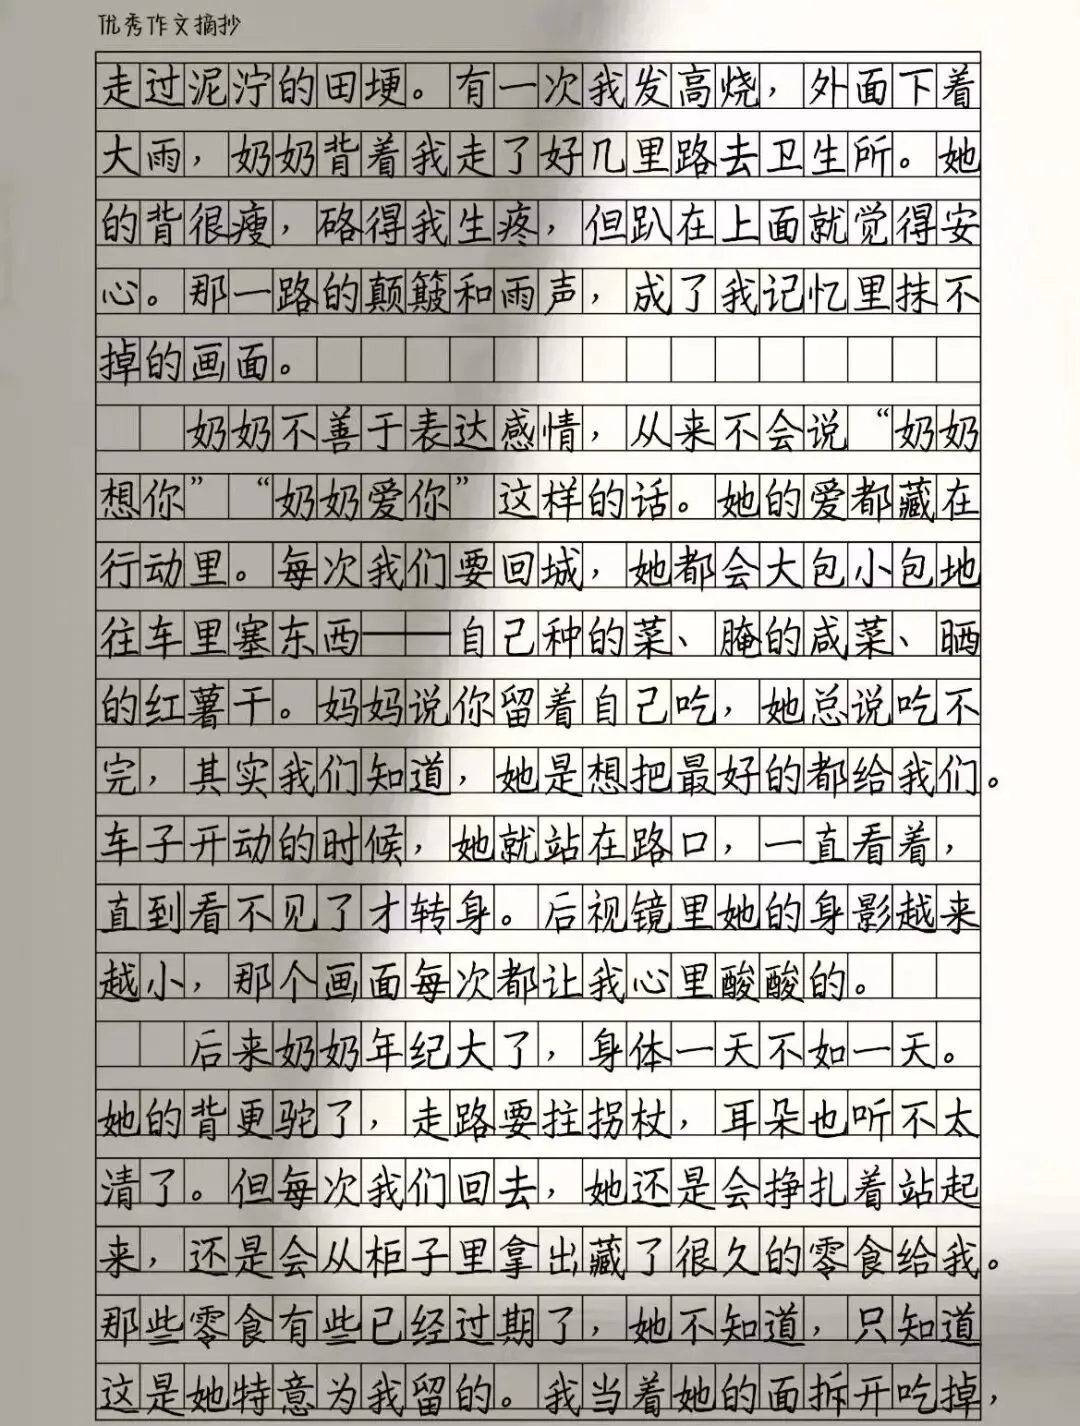 优秀作文摘抄
走过泥泞的田埂。有一次我发高烧，外面下着
大雨，奶奶背着我走了好几里路去卫生所。她
的背很瘦，硌得我生疼，但趴在上面就觉得安
心。那一路的颠簸和雨声，成了我记忆里抹不
掉的画面。
奶奶不善于表达感情，从来不会说“奶奶
想你”“奶奶爱你”这样的话。她的爱都藏在
行动里。每次我们要回城，她都会大包小包地
往车里塞东西——自己种的菜、腌的咸菜、晒
的红薯干。妈妈说你留着自己吃，她总说吃不
完，其实我们知道，她是想把最好的都给我们。
车子开动的时候，她就站在路口，一直看着，
直到看不见了才转身。后视镜里她的身影越来
越小，那个画面每次都让我心里酸酸的。
后来奶奶年纪大了，身体一天不如一天。
她的背更驼了，走路要拄拐杖，耳朵也听不太
清了。但每次我们回去，她还是会挣扎着站起
来，还是会从柜子里拿出藏了很久的零食给我。
那些零食有些已经过期了，她不知道，只知道
这是她特意为我留的。我当着她的面拆开吃掉，